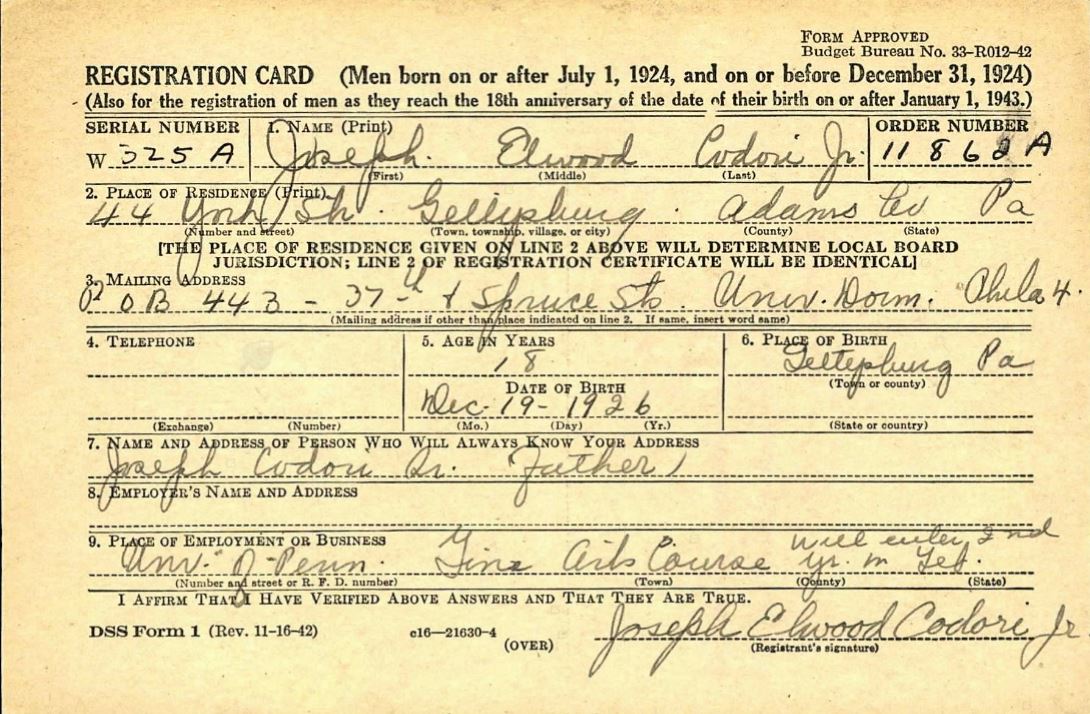 FORM APPROVED
Budget Bureau No. 33-R012-42
REGISTRATION CARD (Men born on or after July 1, 1924, and on or before December 31, 1924)
(Also for the registration of men as they reach the 18th anniversary of the date of their birth on or after January 1, 1943.)
SERIAL NUMBER 1. NAME (Print) ORDER NUMBER
W 325 A Joseph Elwood Codori Jr. 11862 A
(First) (Middle) (Last)
2. PLACE OF RESIDENCE (Print)
44 York St. Gettysburg. Adams Co Pa
(Number and street) (Town, township, village, or city) (County) (State)
[THE PLACE OF RESIDENCE GIVEN ON LINE 2 ABOVE WILL DETERMINE LOCAL BOARD
JURISDICTION; LINE 2 OF REGISTRATION CERTIFICATE WILL BE IDENTICAL]
3. MAILING ADDRESS
P O B 443 - 37th & Spruce Sts. Univ. Dorm. Phila 4.
(Mailing address if other than place indicated on line 2. If same, insert word same)
4. TELEPHONE 5. AGE IN YEARS 6. PLACE OF BIRTH
18 Gettysburg Pa
DATE OF BIRTH (Town or county)
Dec. 19 - 1926
(Exchange) (Number) (Mo.) (Day) (Yr.) (State or country)
7. NAME AND ADDRESS OF PERSON WHO WILL ALWAYS KNOW YOUR ADDRESS
Joseph Codori Sr. Father)
8. EMPLOYER'S NAME AND ADDRESS
9. PLACE OF EMPLOYMENT OR BUSINESS will enter 2nd
Univ. of Penn. Fine Arts Course yr. in Feb.
(Number and street or R. F. D. number) (Town) (County) (State)
I AFFIRM THAT I HAVE VERIFIED ABOVE ANSWERS AND THAT THEY ARE TRUE.
Joseph Elwood Codori Jr
DSS Form 1 (Rev. 11-16-42) c16—21630-4 (OVER) (Registrant's signature)